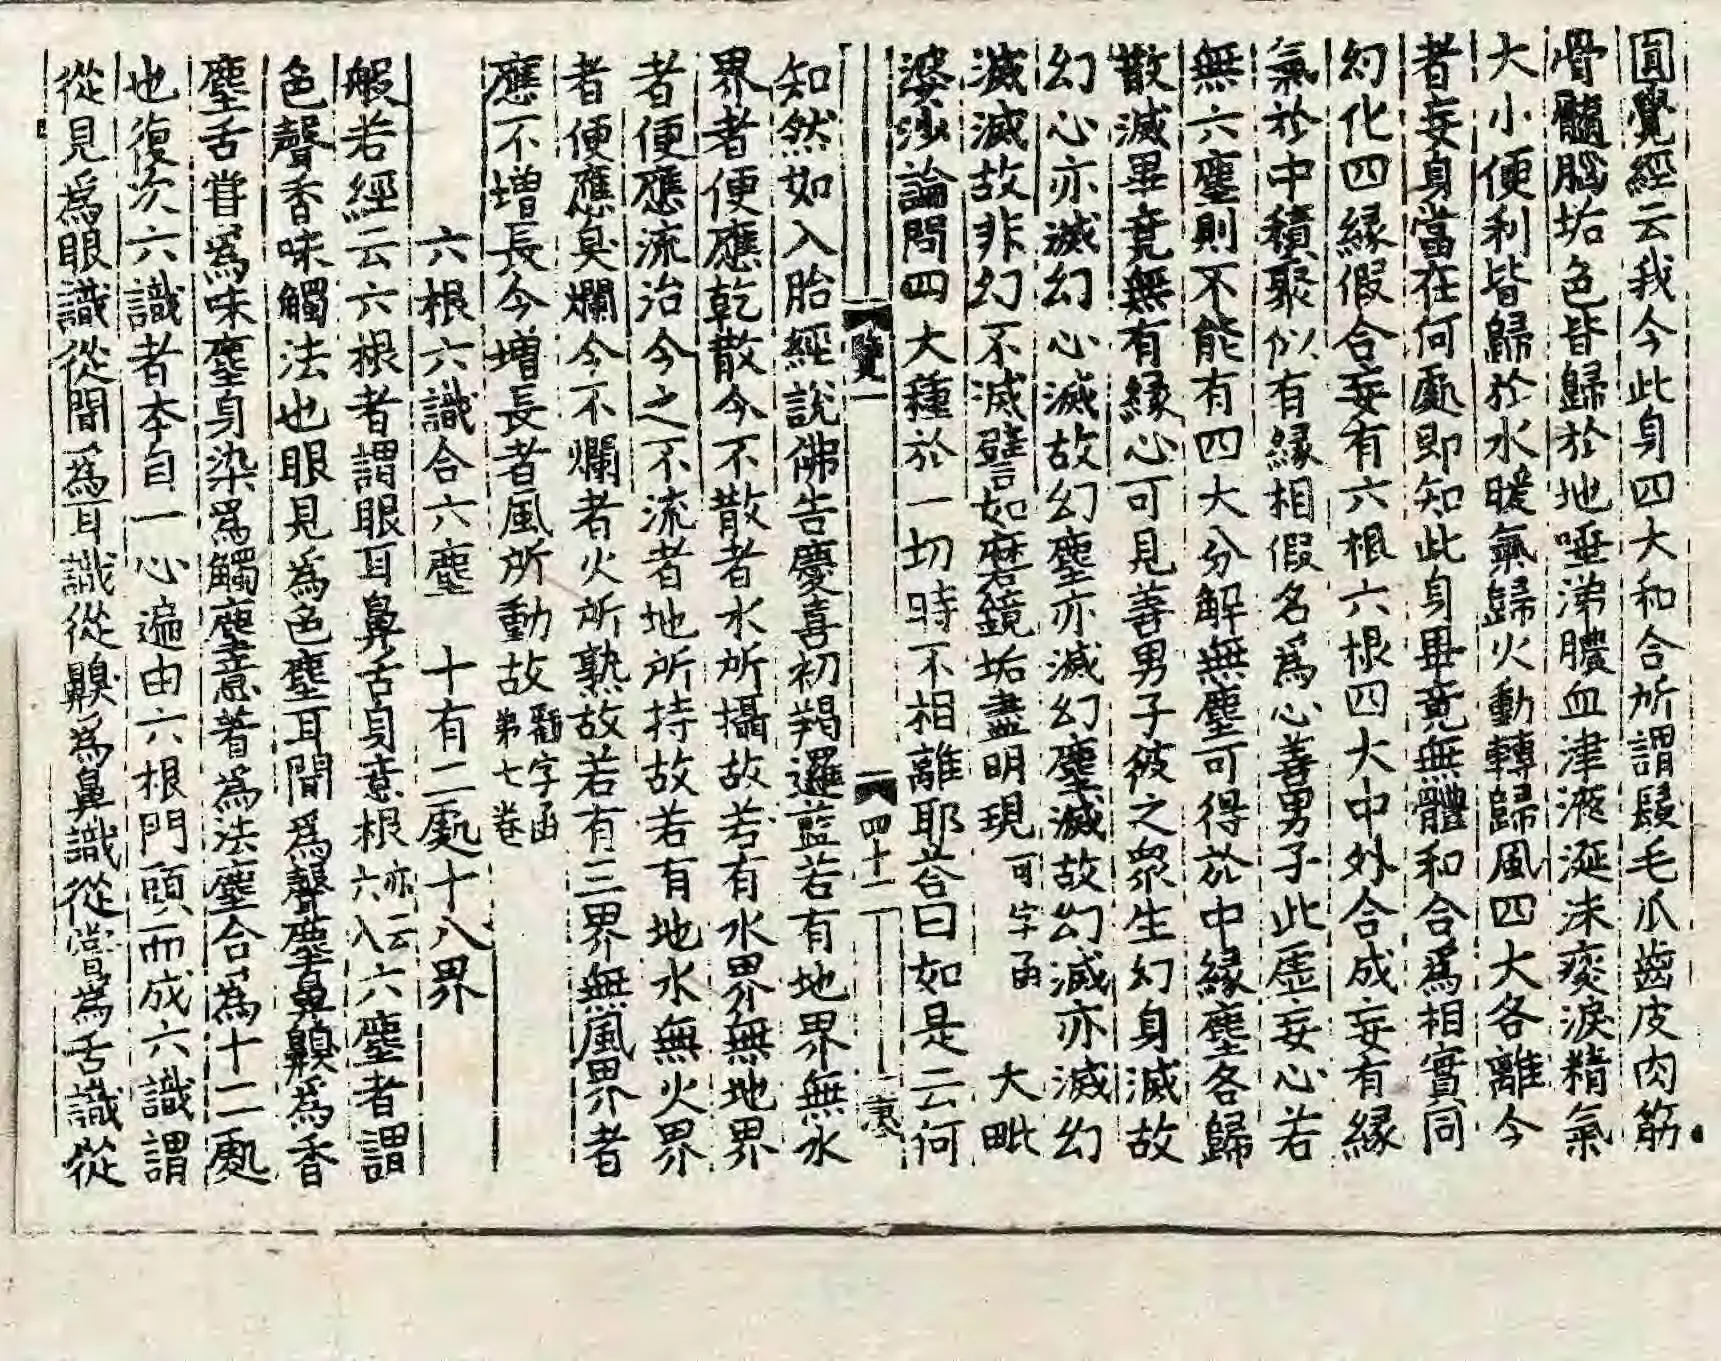 圓覺經云我今此身四大和合所謂髮毛爪齒皮肉筋
骨髓腦垢色皆歸於地唾涕膿血津液涎沫痰淚精氣
大小便利皆歸於水暖氣歸火動轉歸風四大各離今
者妄身當在何處即知此身畢竟無體和合爲相實同
幻化四緣假合妄有六根六根四大中外合成妄有緣
氣於中積聚似有緣相假名爲心善男子此虛妄心若
無六塵則不能有四大分解無塵可得於中緣塵各歸
散滅畢竟無有緣心可見善男子彼之衆生幻身滅故
幻心亦滅幻心滅故幻塵亦滅幻塵滅故幻滅亦滅幻
滅滅故非幻不滅譬如磨鏡垢盡明現可字函 大毗
婆沙論問四大種於一切時不相離耶荅曰如是云何
覽一 四十一
知然如入胎經說佛告慶喜初羯邏藍若有地界無水
界者便應乾散今不散者水所攝故若有水界無地界
者便應流治今之不流者地所持故若有地水無火界
者便應臭爛今不爛者火所熟故若有三界無風界者
應不增長今增長者風所動故 字函第七卷
六根六識合六塵 十有二處十八界
般若經云六根者謂眼耳鼻舌身意根亦云六入六塵者謂
色聲香味觸法也眼見爲色塵耳聞爲聲塵鼻齅爲香
塵舌甞爲味塵身染爲觸塵意著爲法塵合爲十二處
也復次六識者本自一心遍由六根門頭而成六識謂
從見爲眼識從聞爲耳識從齅爲鼻識從甞爲舌識從